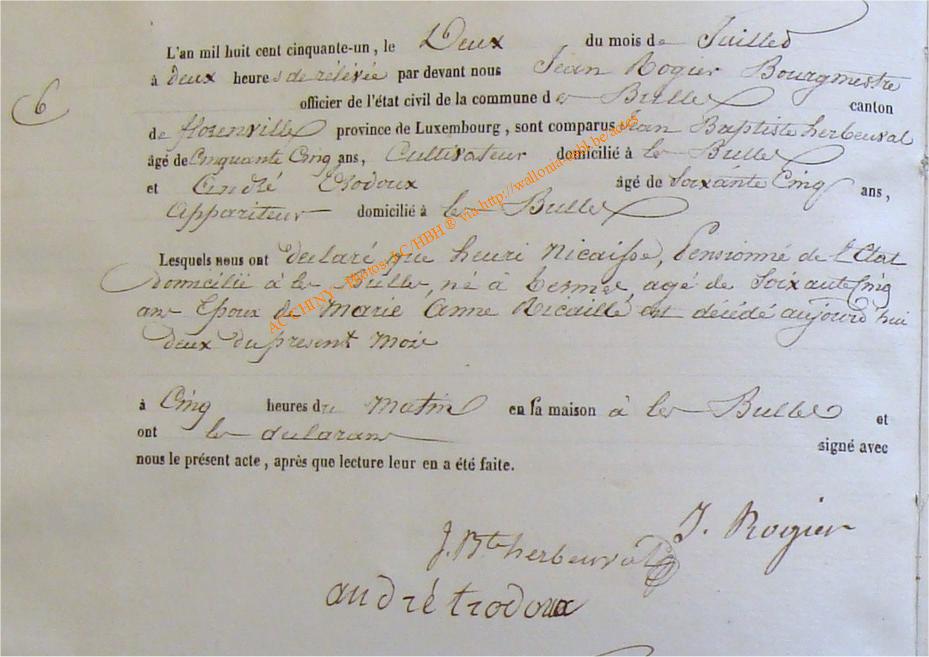 L'an mil huit cent cinquante-un, le Deux du mois de Juillet
à deux heures de rélévée par devant nous Jean Rogier Bourgmestre
6
officier de l'état civil de la commune de les Bulles canton
de florenville province de Luxembourg, sont comparus Jean Baptiste herbeuval
âgé de Cinquante Cinq ans, Cultivateur domicilié à les Bulles
et André trodoux âgé de Soixante Cinq ans,
appariteur domicilié à les Bulles
Lesquels nous ont déclaré que henri Nicaisse, Pensionné de l'Etat
domicilié à les Bulles, né à agé de Soixante Cinq
ans Epoux de Marie Anne est décédé aujourd'hui
deux du présent mois
à Cinq heures du matin en sa maison à les Bulles et
ont les déclarans signé avec
nous le présent acte, après que lecture leur en a été faite.
J. Rogier
J. Bte herbeuval
andré trodoux
AC CHINY - Photos AC/HBH ® via http://wallonia-asbl.be/actes